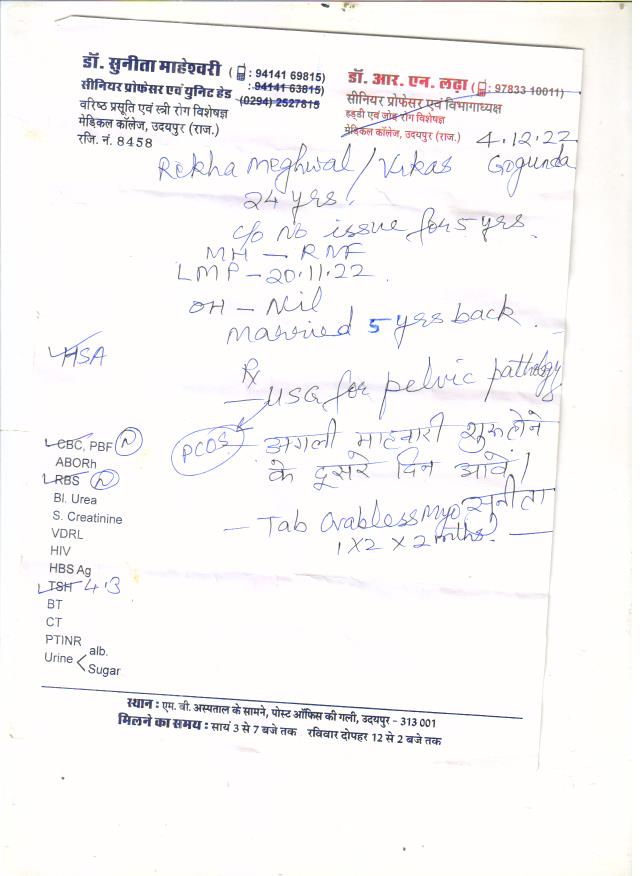 डॉ. सुनीता माहेश्वरी ( : 94141 69815)
सीनियर प्रोफेसर एवं युनिट हेड : 94141 63815)
वरिष्ठ प्रसूति एवं स्त्री रोग विशेषज्ञ (0294) 2527815
मेडिकल कॉलेज, उदयपुर (राज.)
रजि. नं. 8458
डॉ. आर. एन. लढ़ा ( : 97833 10011)
सीनियर प्रोफेसर एवं विभागाध्यक्ष
हड्डी एवं जोड़ रोग विशेषज्ञ
मेडिकल कॉलेज, उदयपुर (राज.)
4.12.22
Rekha Meghwal / Vikas Gogunda
24 yrs.
c/o No issue for 5 yrs.
MH - RNF
LMP - 20.11.22
OH - Nil
Married 5 yrs back.
HSA
Rx
- USG for pelvic pathology
PCOS
अगली माहवारी शुरू होने
के दूसरे दिन आवें।
सुनीता
- Tab Ovabless Myo
1 X 2 X 2 mths.
CBC, PBF N
ABORh
RBS N
Bl. Urea
S. Creatinine
VDRL
HIV
HBS Ag
TSH 4.3
BT
CT
PTINR
Urine < alb.
Sugar
स्थान : एम. बी. अस्पताल के सामने, पोस्ट ऑफिस की गली, उदयपुर - 313 001
मिलने का समय : सायं 3 से 7 बजे तक रविवार दोपहर 12 से 2 बजे तक